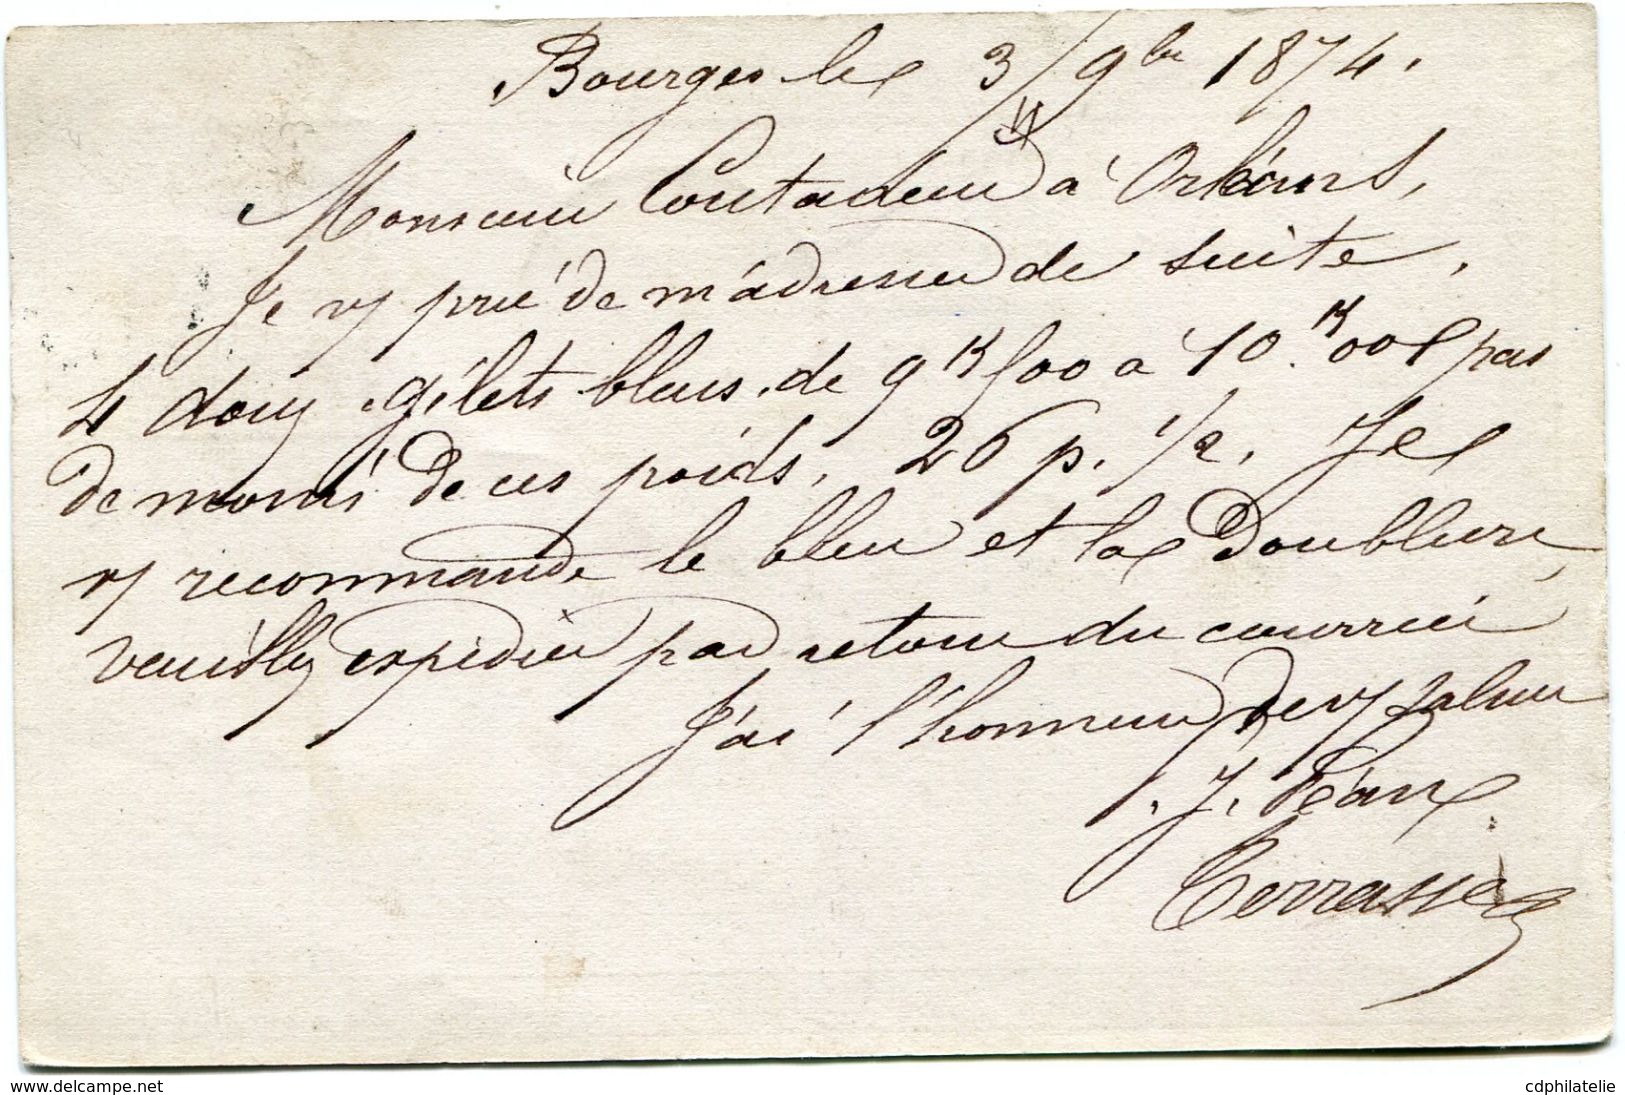 Bourges le 3/9bre 1874.
Monsieur Coutadeur à Orléans,
Je vs prie de m'adresser de suite,
4 douz gilets bleus de 9k500 à 10.k00 pas
de moins de ces poids, 26 p. 1/2, Je
vs recommande le bleu et la Doublure,
veuillez expédier par retour du courrier
J'ai l'honneur de vs saluer
J. Péan
Terrasse
www.delcampe.net
cdphilatelie